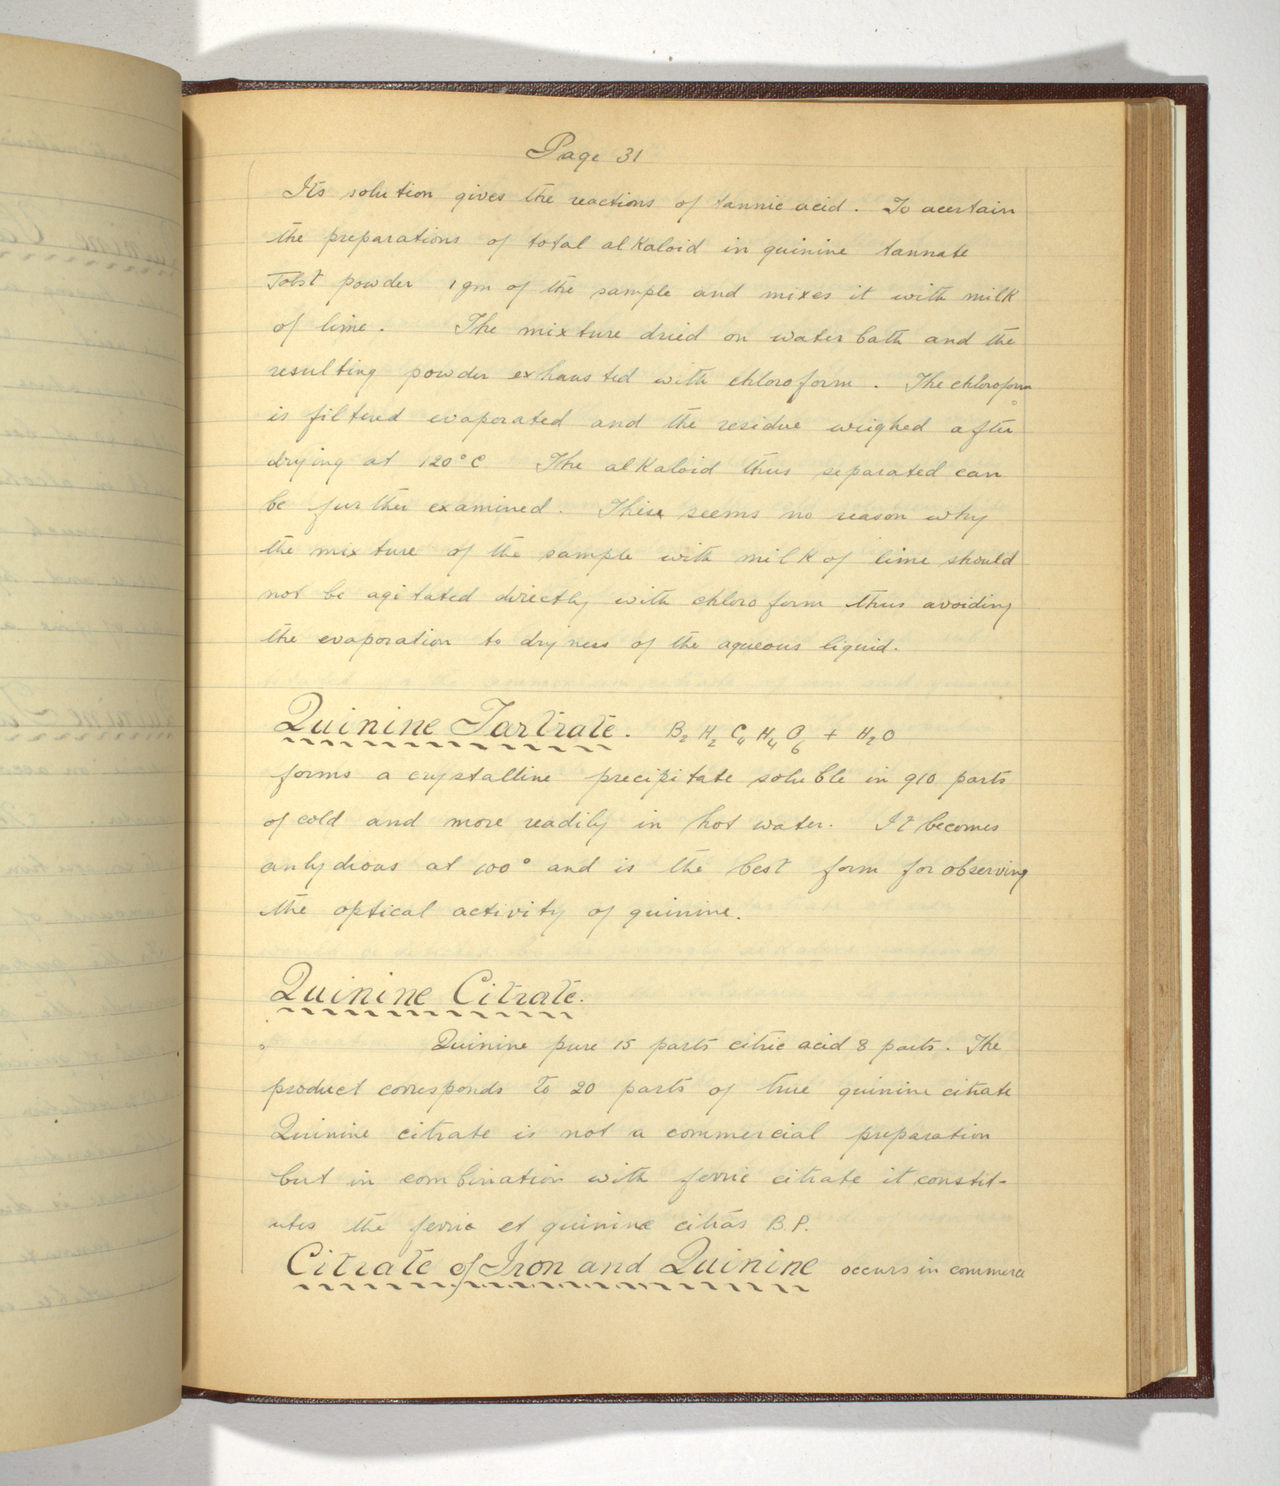 Page 31
Its solution gives the reactions of tannic acid. To acertain
the preparations of total alkaloid in quinine tannate
Tobst powder 1 gm of the sample and mixes it with milk
of lime. The mixture dried on water bath and the
resulting powder exhausted with chloroform. The chloroform
is filtered evaporated and the residue weighed after
drying at 120° C The alkaloid thus separated can
be further examined. There seems no reason why
the mixture of the sample with milk of lime should
not be agitated directly with chloroform thus avoiding
the evaporation to dryness of the aqueous liquid.
Quinine Tartrate. B₂ H₂ C₄ H₄ O₆ + H₂O
forms a crystalline precipitate soluble in 910 parts
of cold and more readily in hot water. It becomes
anhydrous at 100° and is the best form for observing
the optical activity of quinine.
Quinine Citrate.
Quinine pure 15 parts citric acid 8 parts. The
product corresponds to 20 parts of true quinine citrate
Quinine citrate is not a commercial preparation
but in combination with ferric citrate it constit-
utes the ferric et quinine citras B.P.
Citrate of Iron and Quinine occurs in commerce